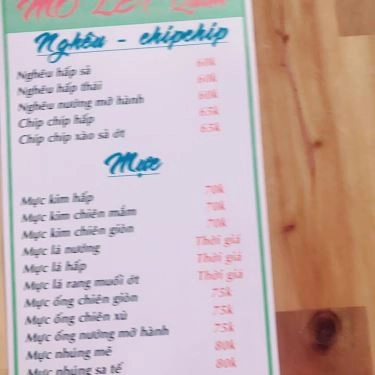 MỞ LÉT Quán
Nghêu - chipchip
Nghêu hấp sả 60k
Nghêu hấp thái 60k
Nghêu nướng mỡ hành 60k
Chip chip hấp 65k
Chip chip xào sả ớt 65k
Mực
Mực kim hấp 70k
Mực kim chiên mắm 70k
Mực kim chiên giòn 70k
Mực lá nướng Thời giá
Mực lá hấp Thời giá
Mực lá rang muối ớt Thời giá
Mực ống chiên giòn 75k
Mực ống chiên xù 75k
Mực ống nướng mỡ hành 75k
Mực nhúng mẻ 80k
Mực nhúng sa tế 80k